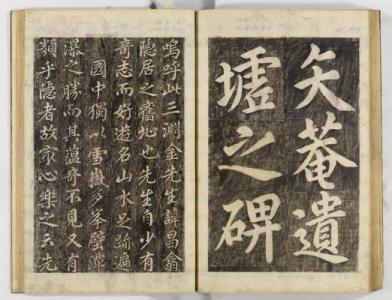 矢菴遺
墟之碑
嗚呼此三淵金先生諱昌翕
隱居之舊址也先生自少有
奇志而好遊名山水足跡遍
國中獨以雪嶽多峯壁潭
瀑之勝而其薀奇不見又有
類乎隱者故最心樂之云先